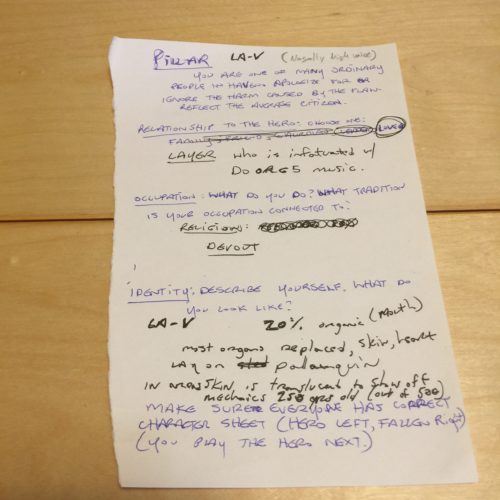 PILLAR LA-V (Nasally high voice)
YOU ARE ONE OF MANY ORDINARY
PEOPLE IN HAVEN. APOLOGIZE FOR OR
IGNORE THE HARM CAUSED BY THE FLAW.
REFLECT THE AVERAGE CITIZEN.
RELATIONSHIP TO THE HERO: CHOOSE ONE:
FAMILY, LOVER
LAYER who is infatuated w/
Do ORG5 music.
OCCUPATION: WHAT DO YOU DO? WHAT TRADITION
IS YOUR OCCUPATION CONNECTED TO?
RELIGION:
DEVOUT
IDENTITY: DESCRIBE YOURSELF. WHAT DO
YOU LOOK LIKE?
LA-V 20% organic (mouth)
most organs replaced, skin, heart
Lay on palanquin
IN skin is translucent to show off
mechanics 250 yrs old (out of 500)
MAKE SURE EVERYONE HAS CORRECT
CHARACTER SHEET (HERO LEFT, FALLEN Right)
(YOU PLAY THE HERO NEXT)